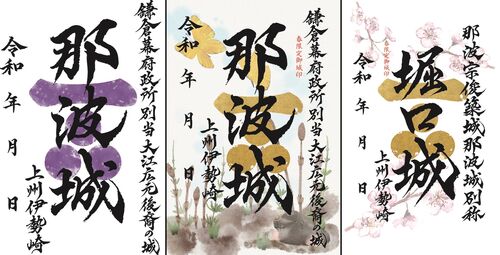 鎌倉幕府政所別当大江広元後裔の城
那波城
上州伊勢崎
令和 年 月 日
鎌倉幕府政所別当大江広元後裔の城
春限定御城印
那波城
上州伊勢崎
令和 年 月 日
那波宗俊築城那波城別称
堀口城
上州伊勢崎
春限定御城印
令和 年 月 日